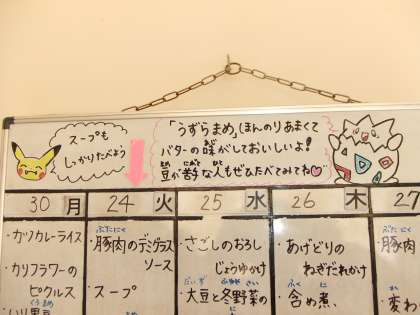 スープも
しっかりたべよう
「うずらまめ」ほんのりあまくて
バターの味がしておいしいよ!
豆が苦手な人もぜひたべてみてね♡
30 月
24 火
25 水
26 木
27
・カツカレーライス
・カリフラワーの
ピクルス
・豚肉のデミグラス
ソース
・スープ
・さごしのおろし
じょうゆがけ
・大豆と冬野菜の
・あげどりの
ねぎだれがけ
・含め煮
・豚肉
・変わ